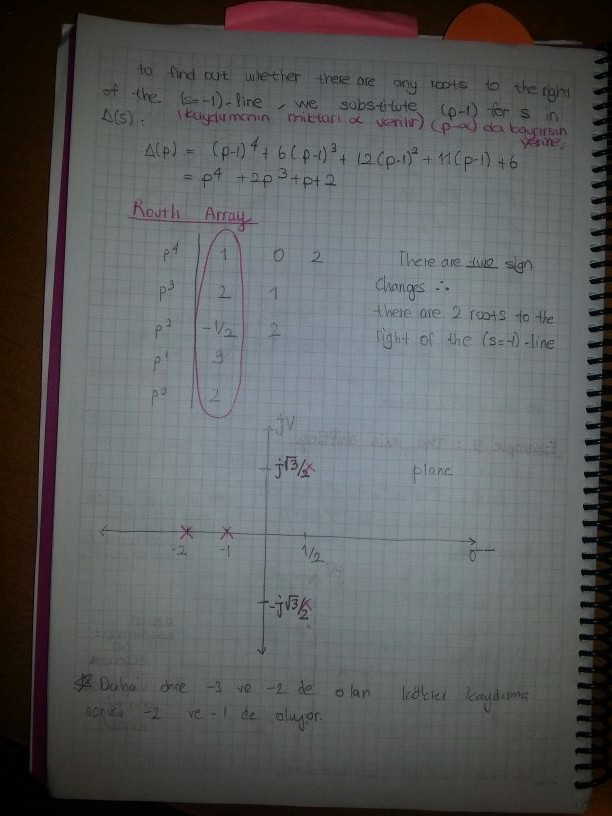 to find out whether there are any roots to the right
of the (s=-1)-line, we substitute (p-1) for s in
Δ(s). (kaydırmanın miktarı α verilir) (p-α) da kayarsın
yerine.
Δ(p) = (p-1)^4 + 6(p-1)^3 + 12(p-1)^2 + 11(p-1) + 6
= p^4 + 2p^3 + p + 2
Routh Array
p^4 1 0 2
p^3 2 1
p^2 -1/2 2
p^1 9
p^0 2
There are two sign
changes ∴
there are 2 roots to the
right of the (s=-1)-line
jV
j√3/2
plane
-2 -1 1/2 σ
-j√3/2
* Daha önce -3 ve -2 de olan kökler kaydırma
sonra -2 ve -1 de oluyor.